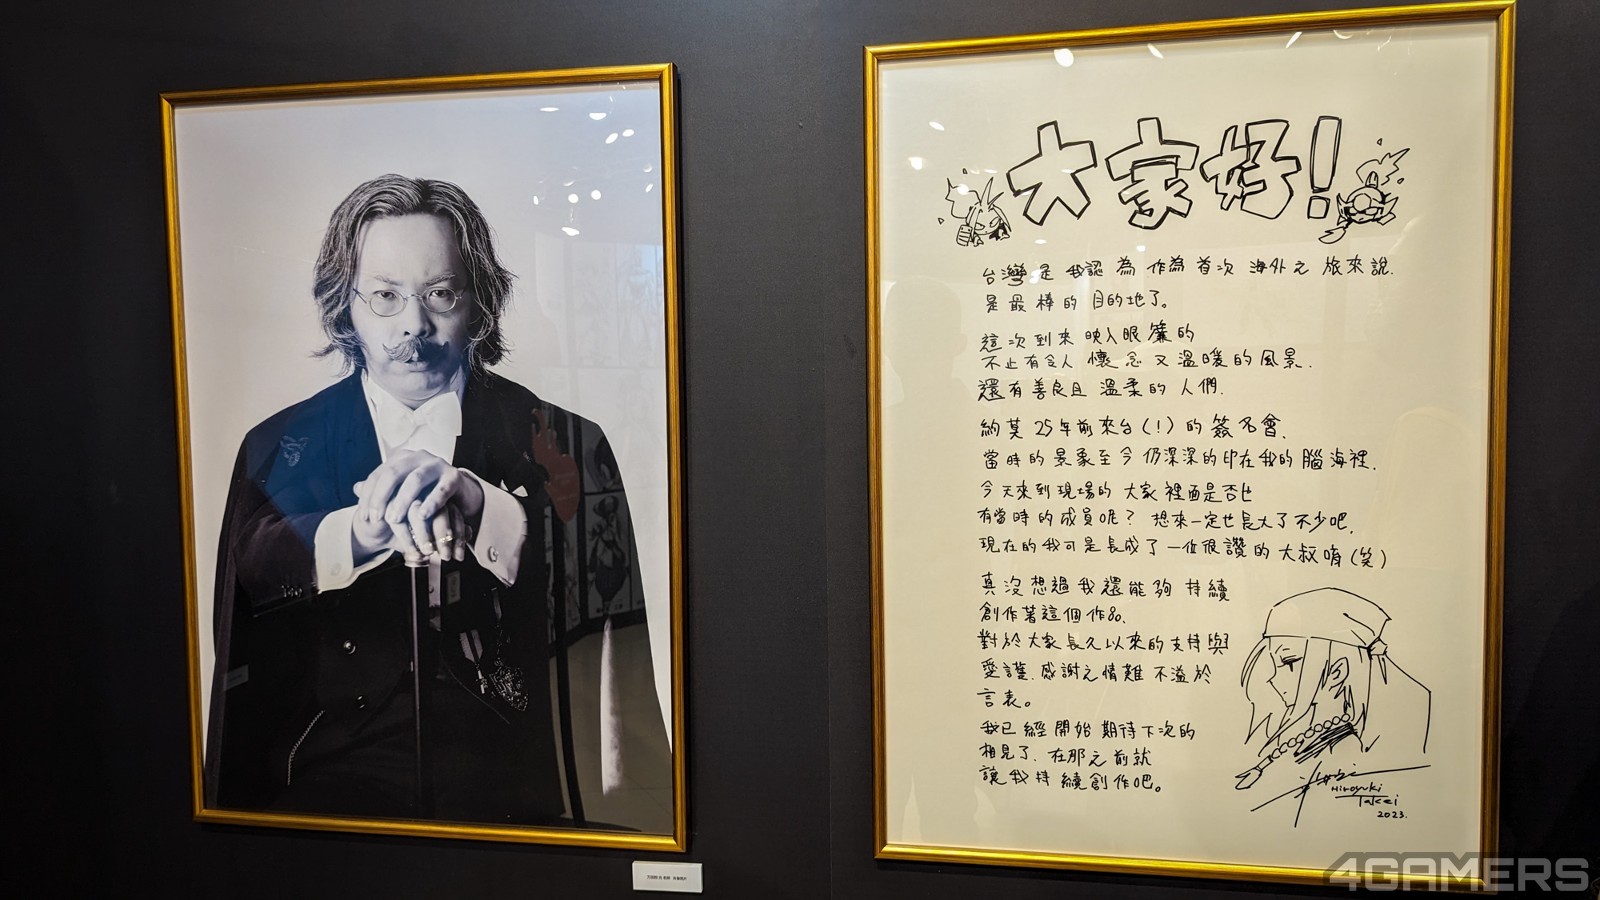 大家好!
台灣是我認為作為首次海外之旅來說.
是最棒的目的地了。
這次到來映入眼簾的
不止有令人懷念又溫暖的風景.
還有善良且溫柔的人們.
約莫25年前來台(!)的簽名會.
當時的景象至今仍深深的印在我的腦海裡.
今天來到現場的大家裡面是否也
有當時的成員呢? 想來一定也長大了不少吧.
現在的我可是長成了一位很讚的大叔唷(笑)
真沒想過我還能夠持續
創作著這個作品.
對於大家長久以來的支持與
愛護.感謝之情難不溢於
言表。
我已經開始期待下次的
相見了.在那之前就
讓我持續創作吧。
Hiroyuki
Takei
2023.
4GAMERS